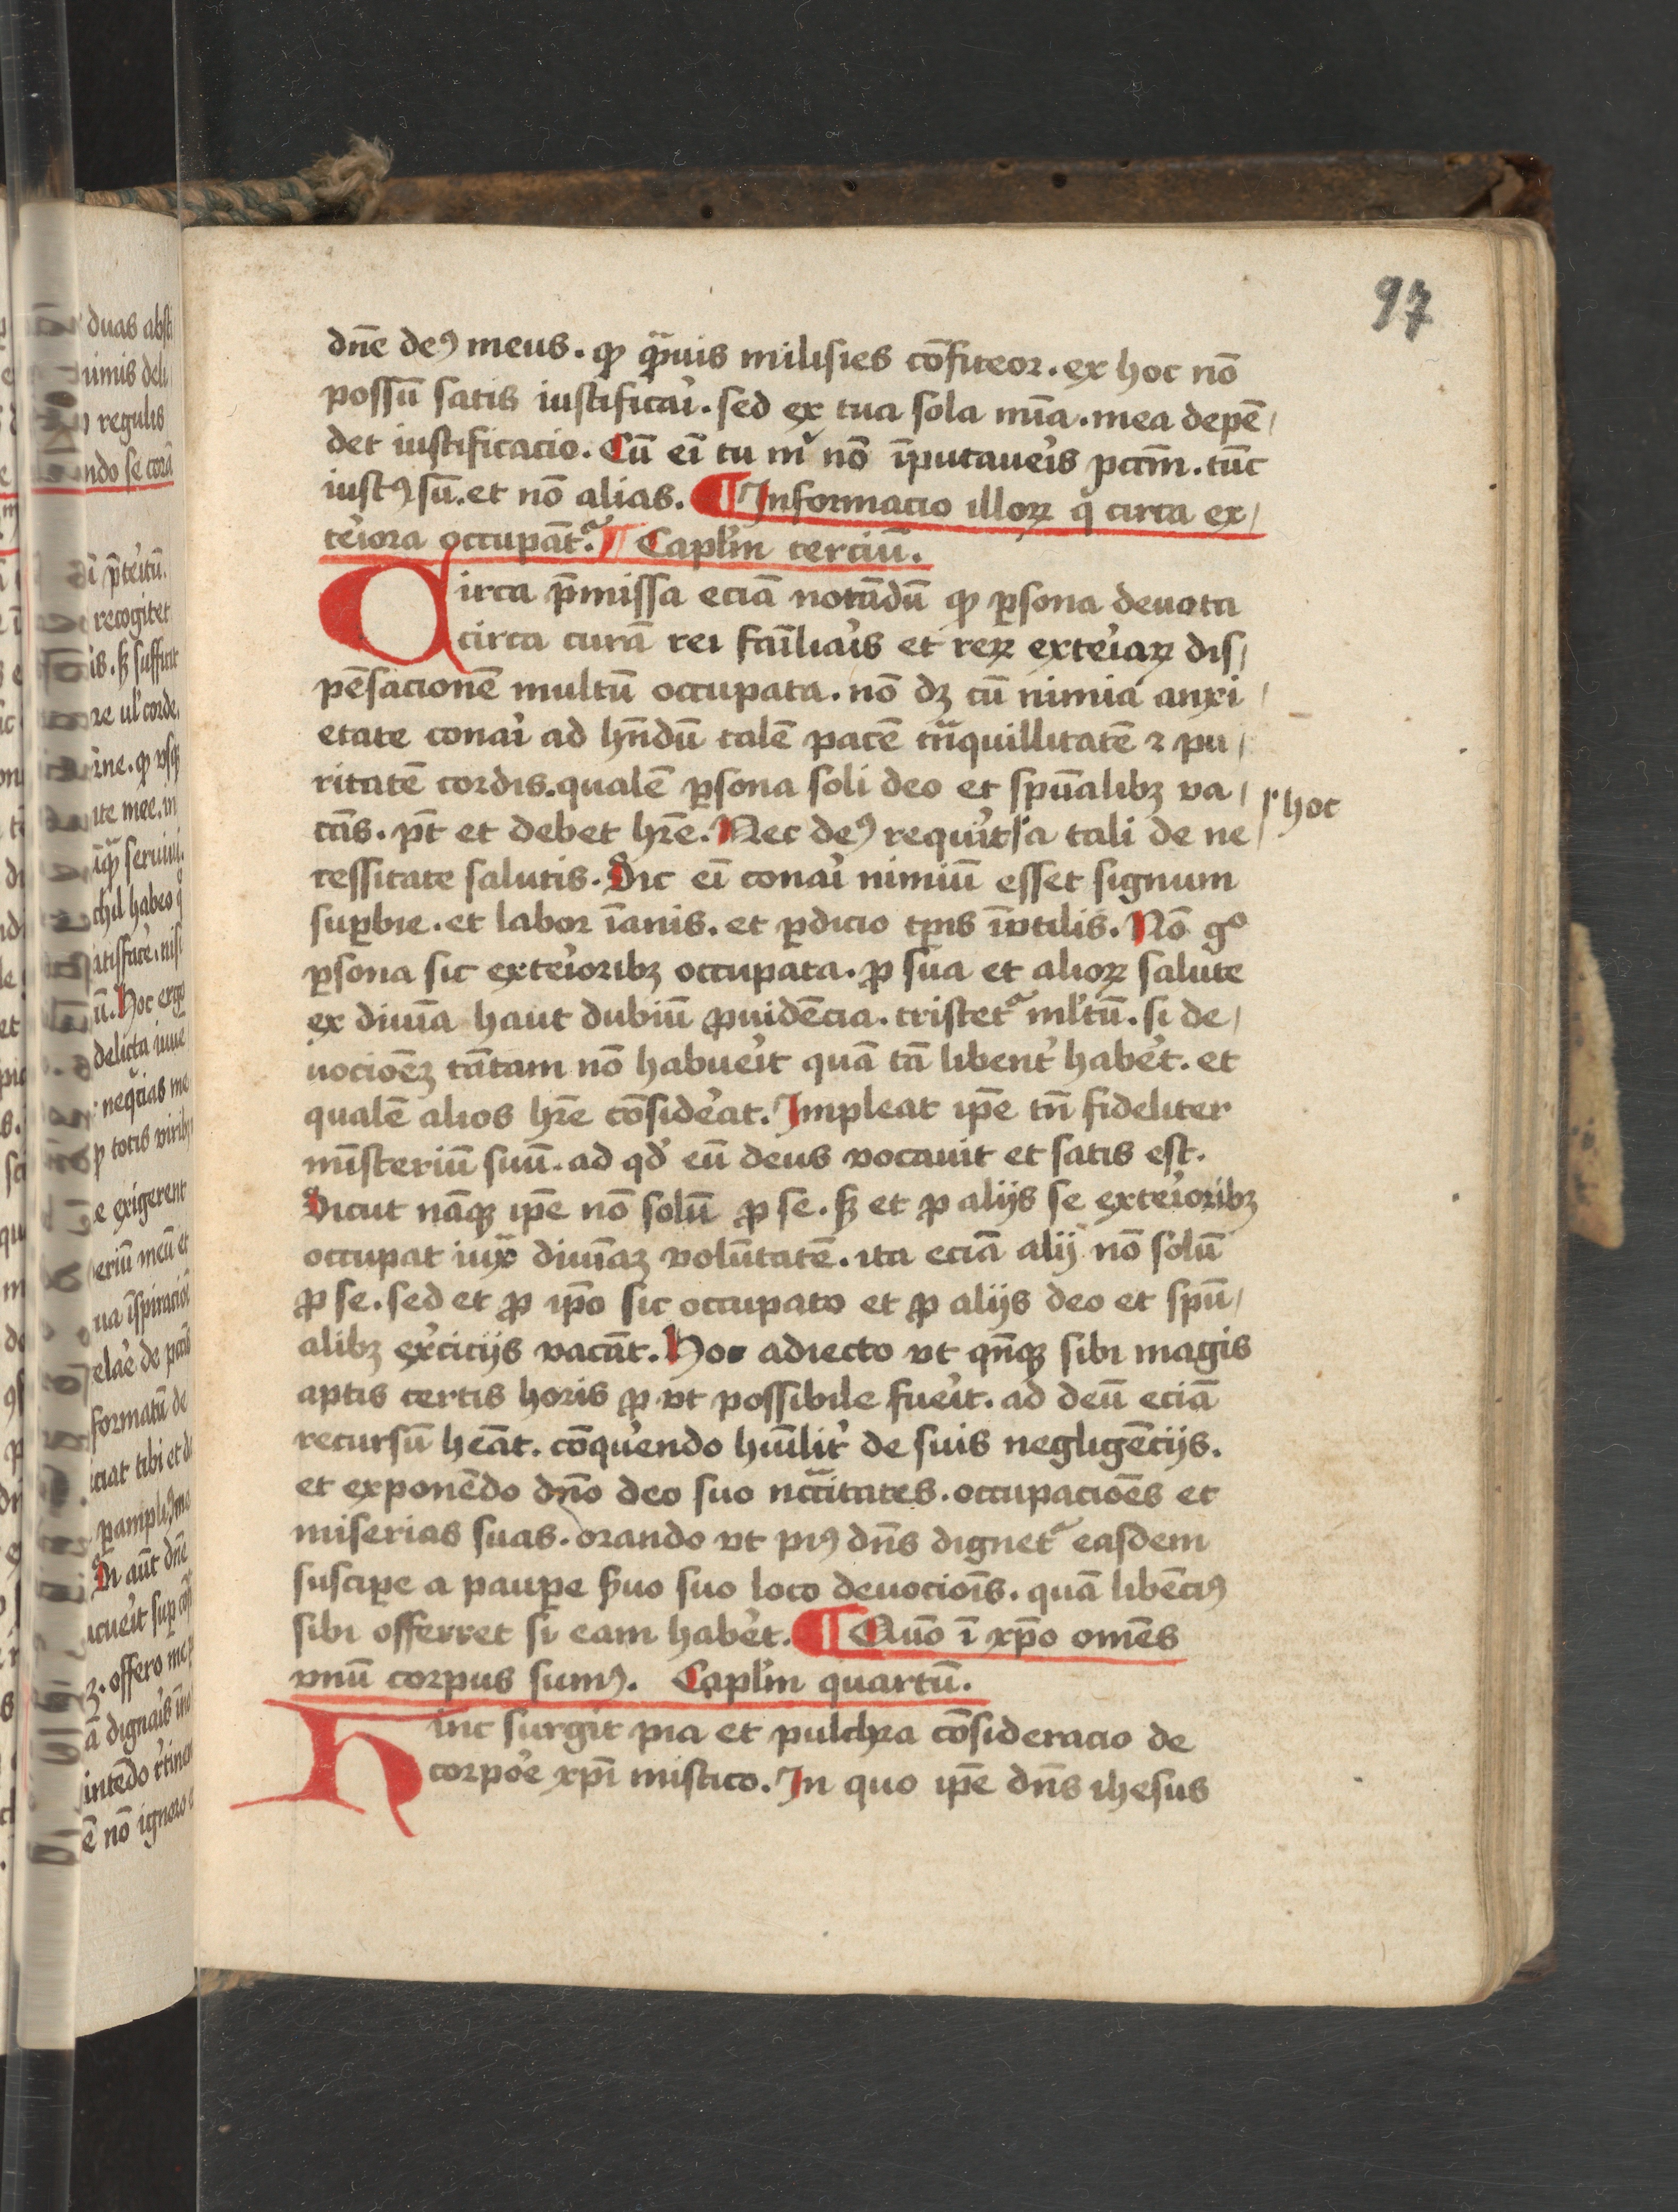 97
dn̄e deꝰ meus. ꝙ qᷓmuis milisies cōfiteor. ex hoc nō
possū satis iustificaꝛ̉. sed ex tua sola mīa. mea depē/
det iustificacio. Cū eī tu mͥ nō īputaue̓is pccm̄. tūc
iustꝰ sū. et nō alias. ¶ Informacio illoꝝ qͥ circa ex/
te̓iora occupāt᷑. ¶ Capl̓m terciū.
Circa p̄missa eciā notādū ꝙ ꝑsona deuota
circa curā rei fāiliaꝛ̉is et reꝝ exte̓iaꝝ dis/
pēsacionē multū occupata. nō dꝫ cū nimia anxi/
etate conaꝛ̉i ad hn̄dū talē pacē tᷓnquillitatē ⁊ pu/
ritatē cordis. qualē ꝑsona soli deo et spūalibꝫ va/
cās. pt̄ et debet hr̄e. Nec deꝰ requi̓it a tali de ne/
⸍ hoc
cessitate salutis. Sic eī conaꝛ̉i nimiū esset signum
suꝑbie. et labor īanis. et ꝑdicio tꝑis īvtilis. Nō gͦ
ꝑsona sic exte̓ioribꝫ occupata. ꝓ sua et alioꝝ salute
ex diuīa haut dubiū ꝓuidēcia. tristet᷑ ml̓tū. si de/
uocioēꝫ tātam nō habue̓it quā tā libent̓ habe̓t. et
qualē alios hr̄e cōside̓at. Impleat ip̄e tn̄ fideliter
mīsteriū suū. ad qd̓ eū deus vocauit et satis est.
Sicut nāqꝫ ip̄e nō solū ꝓ se. sꝫ et ꝓ alijs se exte̓ioribꝫ
occupat iuxᷓ diuīaꝫ volūtatē. ita eciā alij nō solū
ꝓ se. sed et ꝓ ip̄o sic occupato et ꝓ alijs deo et spū/
alibꝫ exe̓cicijs vacāt. Hoc adiecto vt qn̄qꝫ sibi magis
aptis certis horis ꝓ vt possibile fue̓it. ad deū eciā
recursū heāt. cōque̓ndo hūilit̓ de suis negligēcijs.
et exponēdo dn̄o deo suo nccītates. occupacioēs et
miserias suas. orando vt piꝰ dn̄s dignet᷑ easdem
susciꝑe a pauꝑe s̓uo suo loco deuocioīs. quā libēciꝰ
sibi offerret si eam habe̓t. ¶ Quō ī xp̄o omēs
vnū corpus sumꝰ. Capl̓m quartū.
Hinc surgit pia et pulchra cōsideracio de
corpoꝛ̉e xp̄i mistico. In quo ip̄e dn̄s ihesus